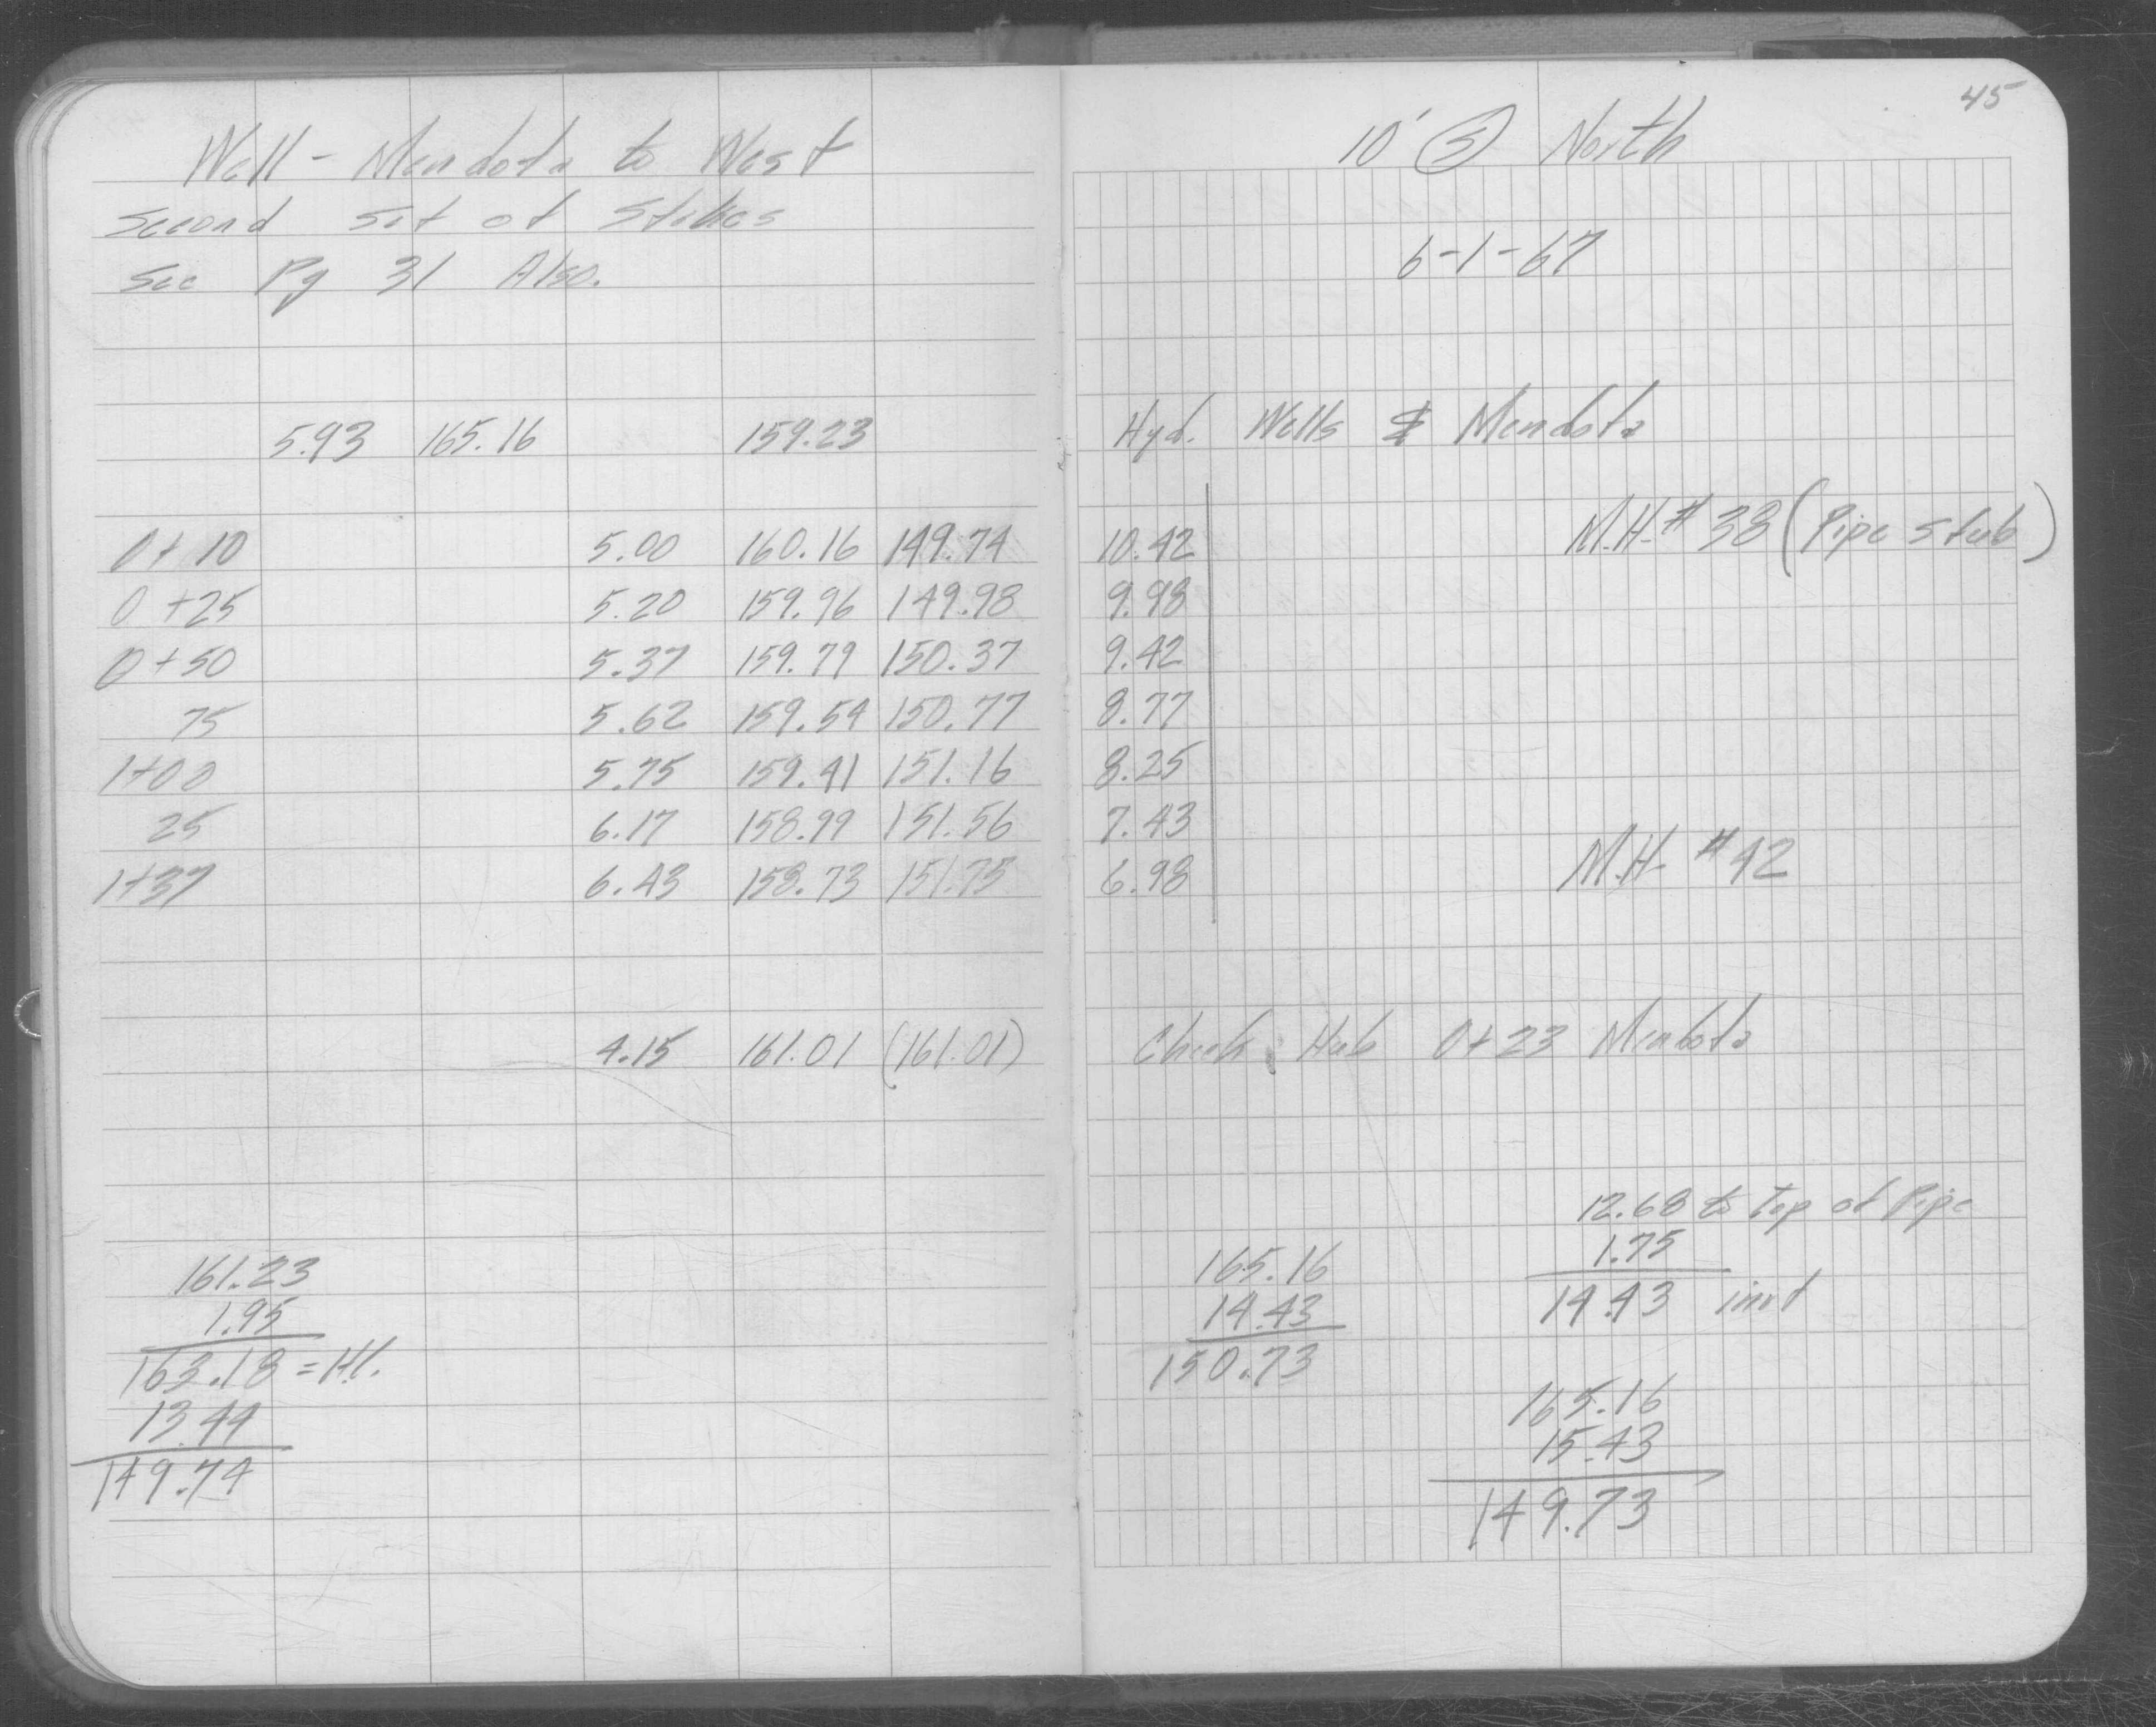 Well - Mendota to West
Second Set of Stakes
See Pg 31 Also.
5.93 165.16 159.23
0+10 5.00 160.16 149.74
0+25 5.20 159.96 149.98
0+50 5.37 159.79 150.37
75 5.62 159.54 150.77
1+00 5.75 159.41 151.16
25 6.17 158.99 151.56
1+37 6.43 158.73 151.75
4.15 161.01 (161.01)
161.23
1.95
163.18 = H.I.
13.44
149.74
45
10' (5) North
6-1-67
Hyd. Wells & Mendota
10.42 M.H. # 38 (Pipe stub)
9.98
9.42
8.77
8.25
7.43
6.98 M.H. # 42
Check Hub 0+23 Mendota
12.68 to top of Pipe
1.75
14.43 invt
165.16
14.43
150.73
165.16
15.43
149.73